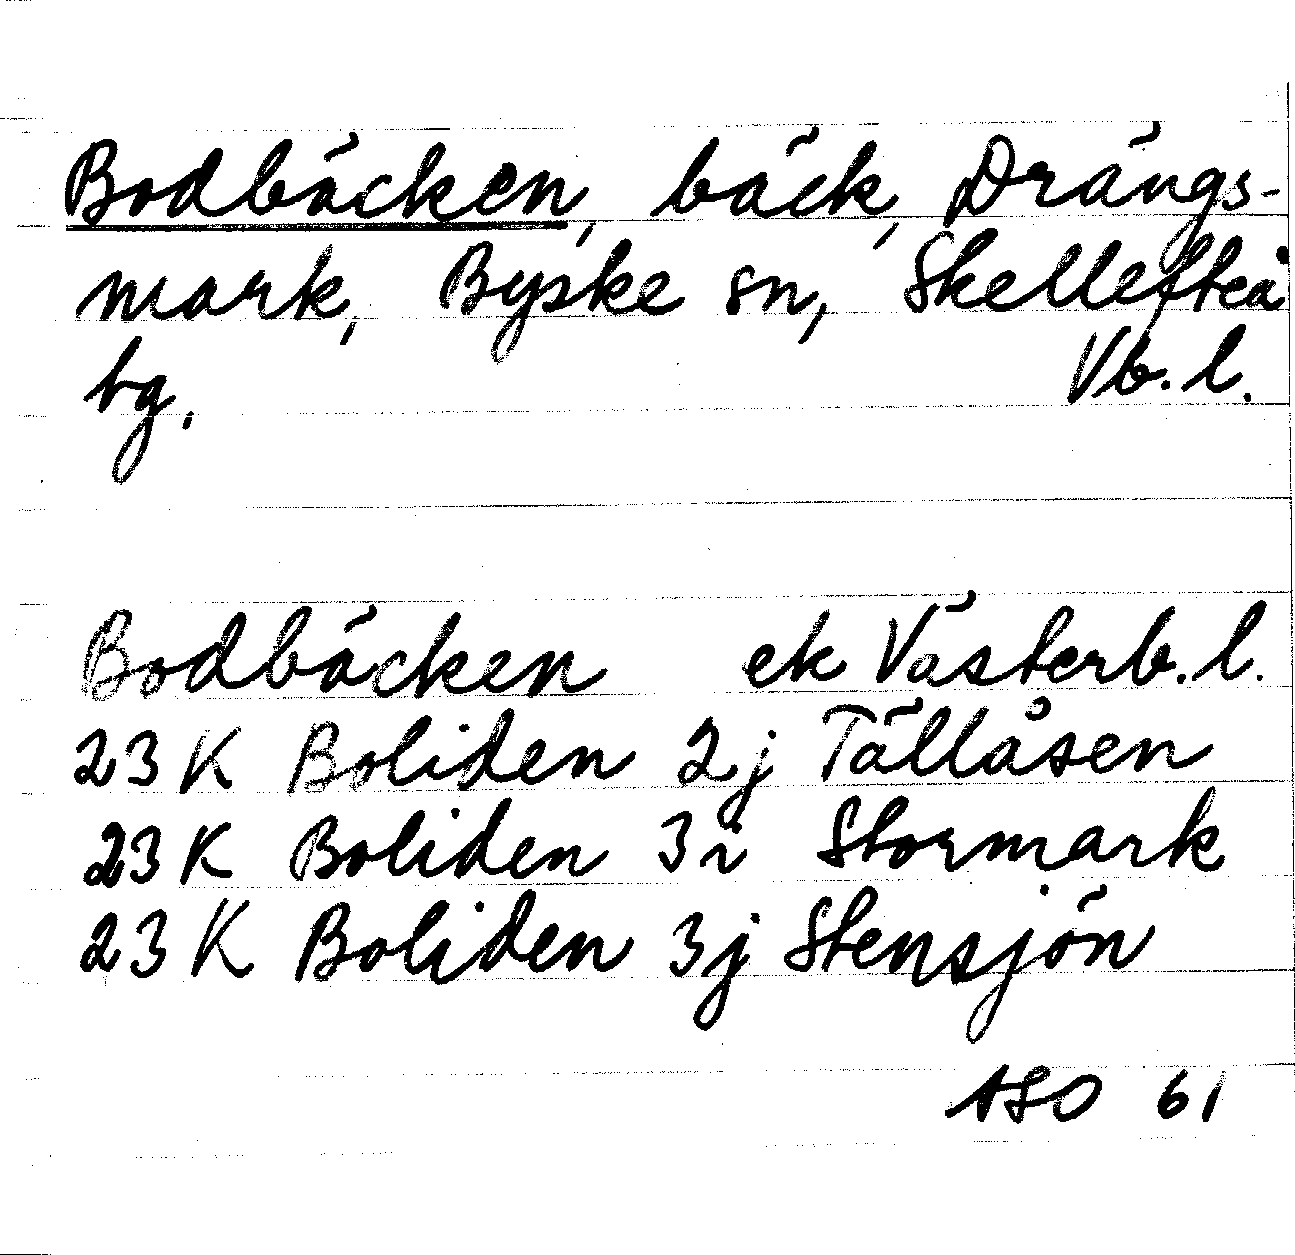 Bodbäcken, bäck, Drängs-
mark, Byske sn, Skellefteå
tg. Vb. l.
Bodbäcken ek Västerb. l.
23 K Boliden 2j Tällåsen
23 K Boliden 3i Stormark
23 K Boliden 3j Stensjön
ASO 61